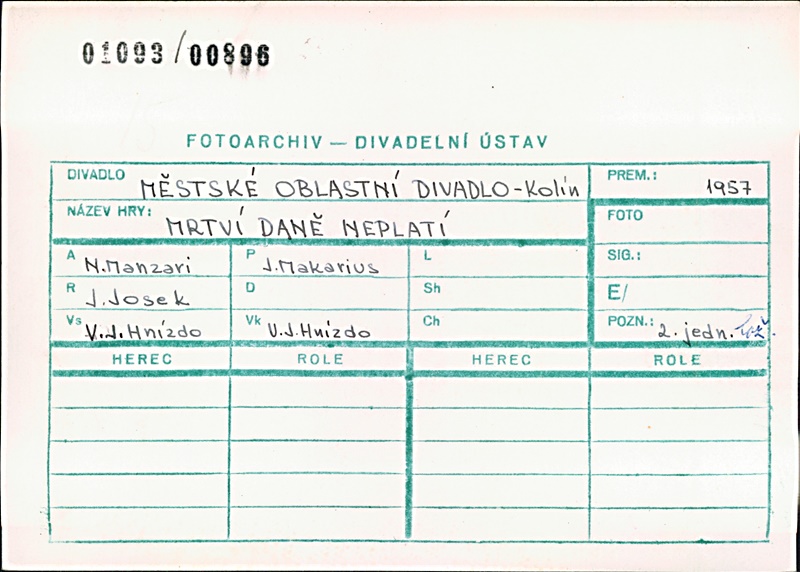 01093/00896
FOTOARCHIV — DIVADELNÍ ÚSTAV
DIVADLO MĚSTSKÉ OBLASTNÍ DIVADLO-Kolín PREM.: 1957
NÁZEV HRY: MRTVÍ DANĚ NEPLATÍ FOTO
A N.Manzari P J.Makarius L SIG.:
R J.Josek D Sh E/
Vs V.J.Hnízdo Vk V.J.Hnízdo Ch POZN.: 2. jedn.
HEREC ROLE HEREC ROLE